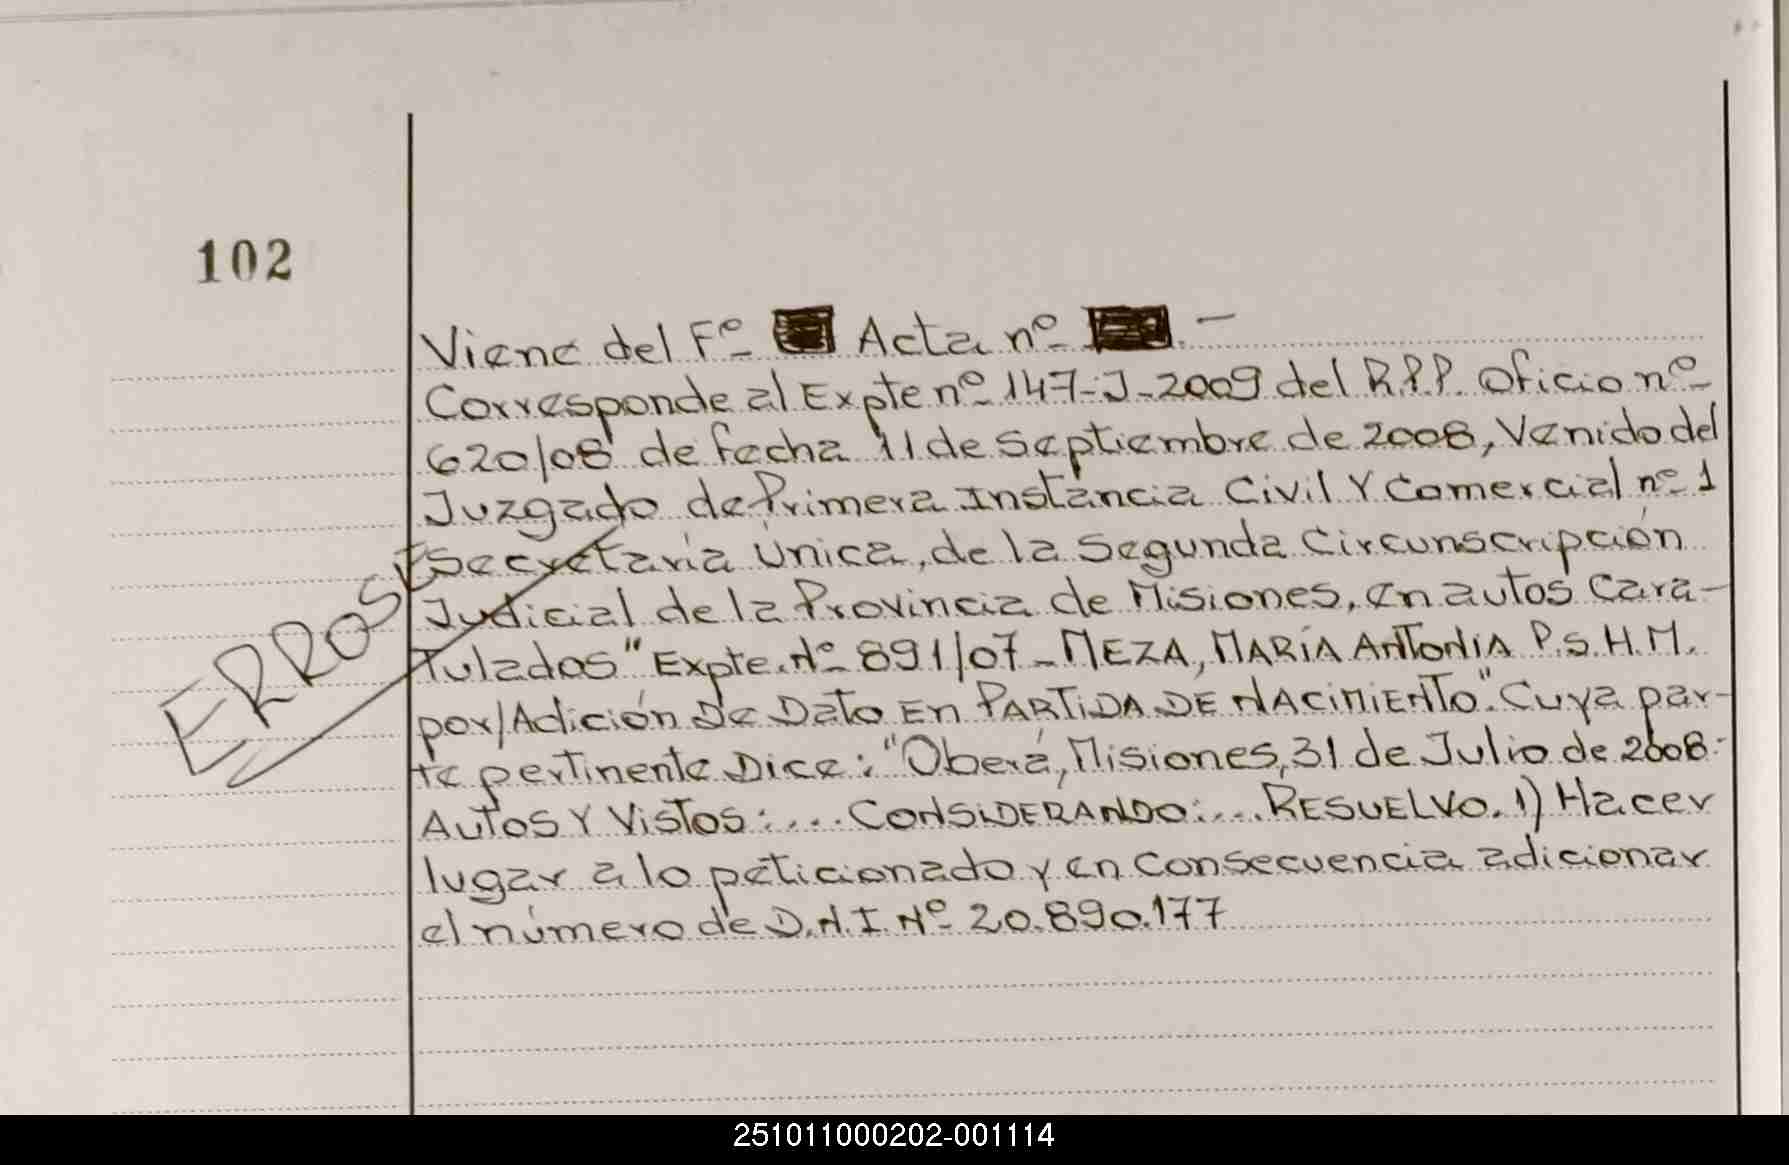 102
Viene del Fº Acta nº . —
Corresponde al Expte nº 147-J-2009 del R.P.P. Oficio nº
620/08 de fecha 11 de Septiembre de 2008, Venido del
Juzgado de Primera Instancia Civil Y Comercial nº 1
Secretaría Única, de la Segunda Circunscripción
Judicial de la Provincia de Misiones, en autos Cara-
ERROSE
tulados "Expte. Nº 891/07 - MEZA, MARÍA ANTONIA P.S.H.M.
por/Adición De Dato En PARTIDA DE NACIMIENTO". Cuya par-
te pertinente Dice: "Oberá, Misiones, 31 de Julio de 2008.-
AUTOS Y VISTOS:... CONSIDERANDO:... RESUELVO. 1) Hacer
lugar a lo peticionado y en Consecuencia adicionar
el número de D.N.I. Nº 20.890.177
251011000202-001114